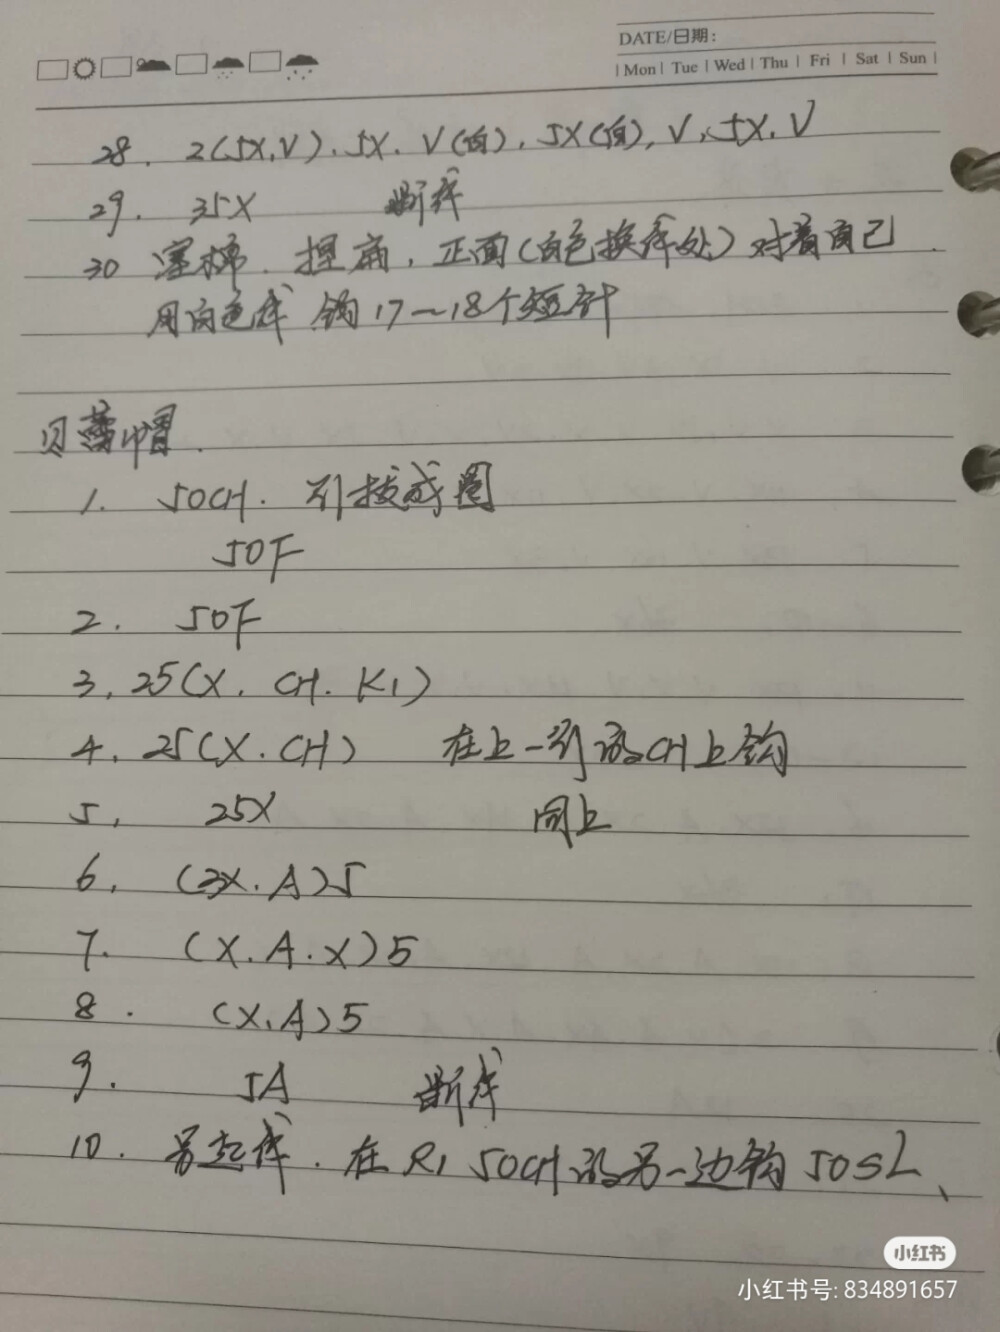 DATE/日期:
Mon Tue Wed Thu Fri Sat Sun
28. 2(5X,V). 5X. V(白), 5X(白), V, 5X. V
29. 35X 断线
30 塞棉. 捏扁, 正面(白色换线处)对着自己
用白色线 钩17-18个短针
贝蕾帽.
1. 50CH. 引拔成圈
50F
2. 50F
3. 25(X. CH. K1)
4. 25(X.CH) 在上一引的CH上钩
5. 25X 同上
6. (3X.A)5
7. (X.A.X)5
8. (X,A)5
9. 5A 断线
10. 另起线. 在R1 50CH的另一边钩50SL、
小红书
小红书号: 834891657